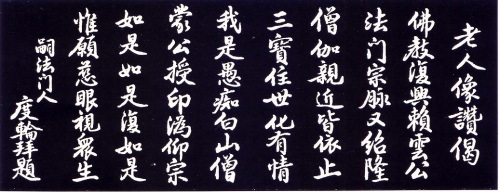 老人像讚偈
佛教復興賴雲公
法门宗脉又绍隆
僧伽親近皆依止
三寶住世化有情
我是愚痴白山僧
蒙公授印溈仰宗
如是如是復如是
惟願慈眼視眾生
嗣法门人
度輪拜題